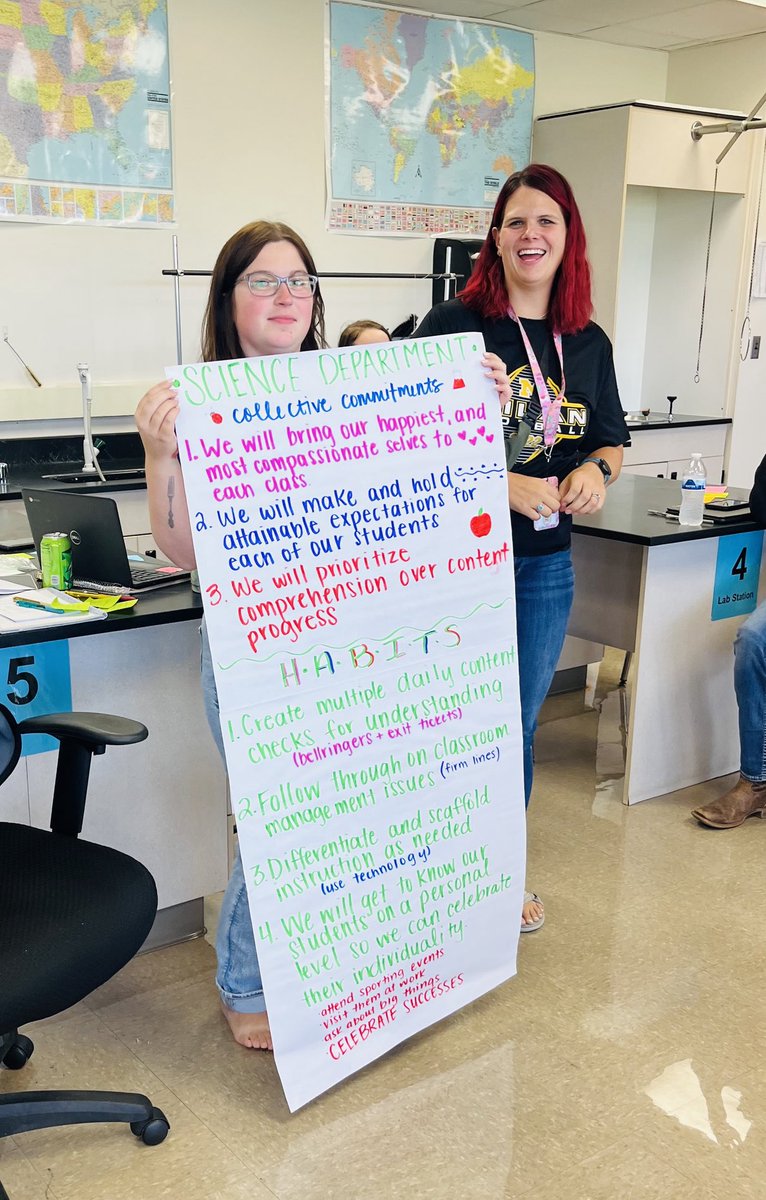 SCIENCE DEPARTMENT
collective commitments
1. We will bring our happiest, and
most compassionate selves to
each class
2. We will make and hold
attainable expectations for
each of our students
3. We will prioritize
comprehension over content
progress
H·A·B·I·T·S
1. Create multiple daily content
checks for understanding
(bellringers + exit tickets)
2. Follow through on classroom
management issues (firm lines)
3. Differentiate and scaffold
instruction as needed
(use technology)
4. We will get to know our
students on a personal
level so we can celebrate
their individuality.
·attend sporting events
·visit them at work
·ask about big things
·CELEBRATE SUCCESSES
5
4
Lab Station